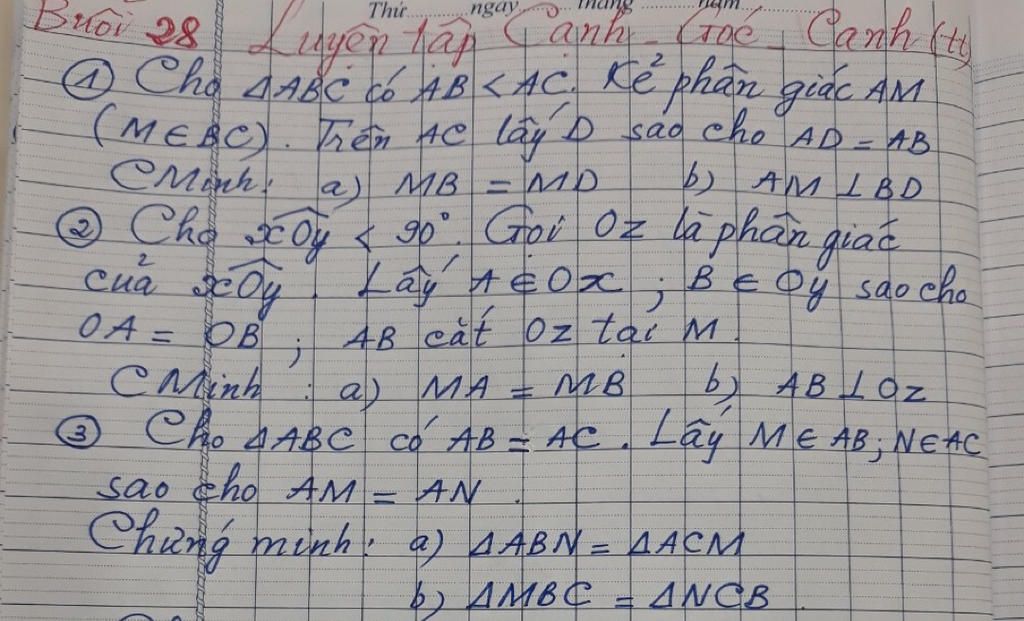 Thứ ngày tháng năm
Buổi 28 Luyện tập Cạnh - Góc - Cạnh (tt)
① Cho ΔABC có AB < AC. Kẻ phân giác AM
(M ∈ BC). Trên AC lấy D sao cho AD = AB
CMinh: a) MB = MD b) AM ⊥ BD
② Cho xÔy < 90°. Gọi Oz là phân giác
của xÔy. Lấy A ∈ Ox ; B ∈ Oy sao cho
OA = OB ; AB cắt Oz tại M.
CMinh : a) MA = MB b) AB ⊥ Oz
③ Cho ΔABC có AB = AC. Lấy M ∈ AB; N ∈ AC
sao cho AM = AN.
Chứng minh: a) ΔABN = ΔACM
b) ΔMBC = ΔNCB.